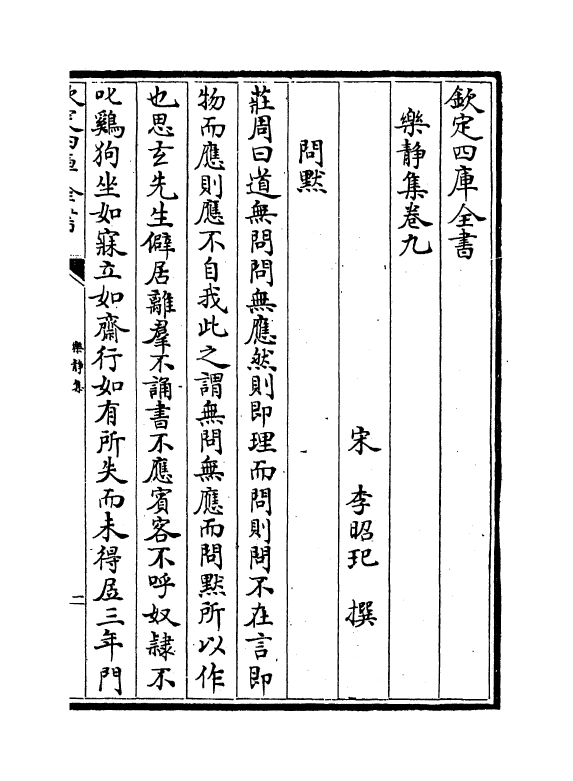 欽定四庫全書
樂静集卷九
宋　李昭玘　撰
問黙
莊周曰道無問問無應然則即理而問則問不在言即
物而應則應不自我此之謂無問無應而問黙所以作
也思玄先生僻居離羣不誦書不應賓客不呼奴隷不
叱鷄狗坐如寐立如齋行如有所失而未得居三年門
樂静集